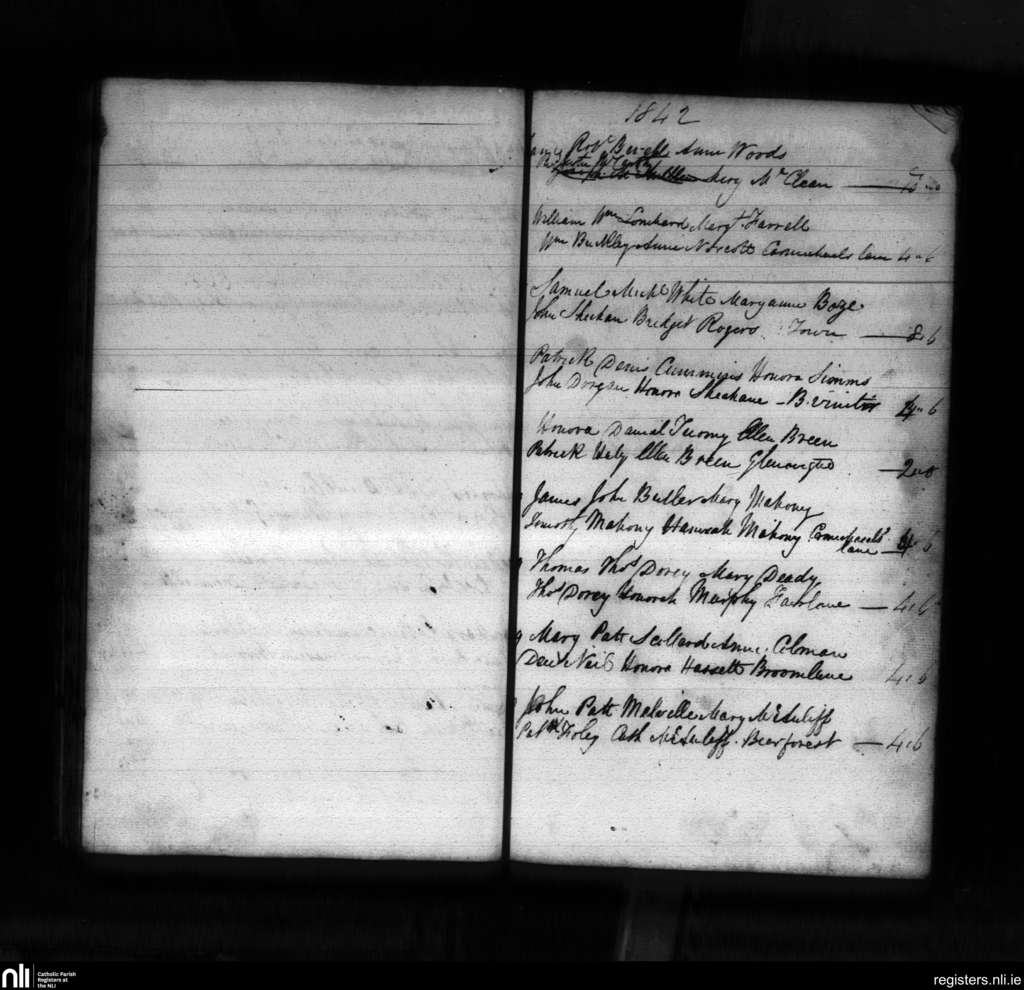 1842
Robt Anne Woods
Mary McClean
William Wm Lombard Margt Farrell
Wm Buckley Anne Norcott Carmichaels lane 4-6
Samuel Michl White Maryanne Boze
John Sheehan Bridget Rogers Town 8-6
Patrick Denis Cummins Honora Simms
John Dorgan Honora Sheehane 6
Honora Daniel Tuomy Ellen Breen
Patrick Haly Ellen Breen 2-0
James John Butler Mary Mahony
Timothy Mahony Hannah Mahony Carmichaels
lane 4-6
Thomas Thos Dorey Mary Deady
Thos Dorey Honorah Murphy Fair lane 4-6
Mary Patt Scollard Anne Colman
Neil Honora Hassett Broomlane 4-6
John Patt Melville Mary McAuliff
Foley Cath McAuliff. Bearforest 4-6
nli
Catholic Parish
Registers at
the NLI
registers.nli.ie